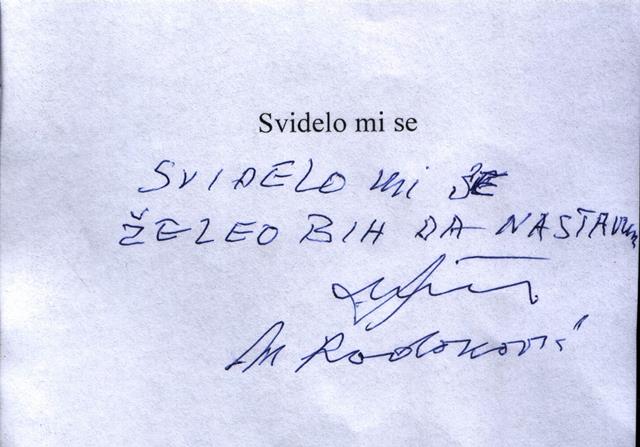 Svidelo mi se
SVIDELO mi SE
ŽELEO BIH DA NASTAVIM
M Radoković